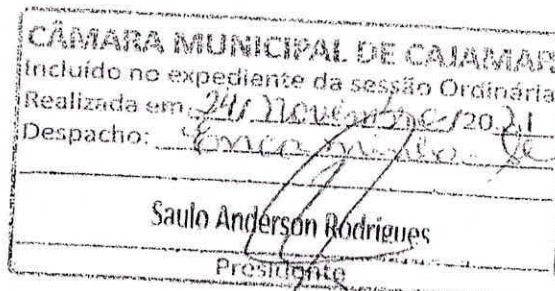 CÂMARA MUNICIPAL DE CAJAMAR
Incluído no expediente da sessão Ordinária
Realizada em 24/ Novembro /2021
Despacho: Encaminha-se
Saulo Anderson Rodrigues
Presidente